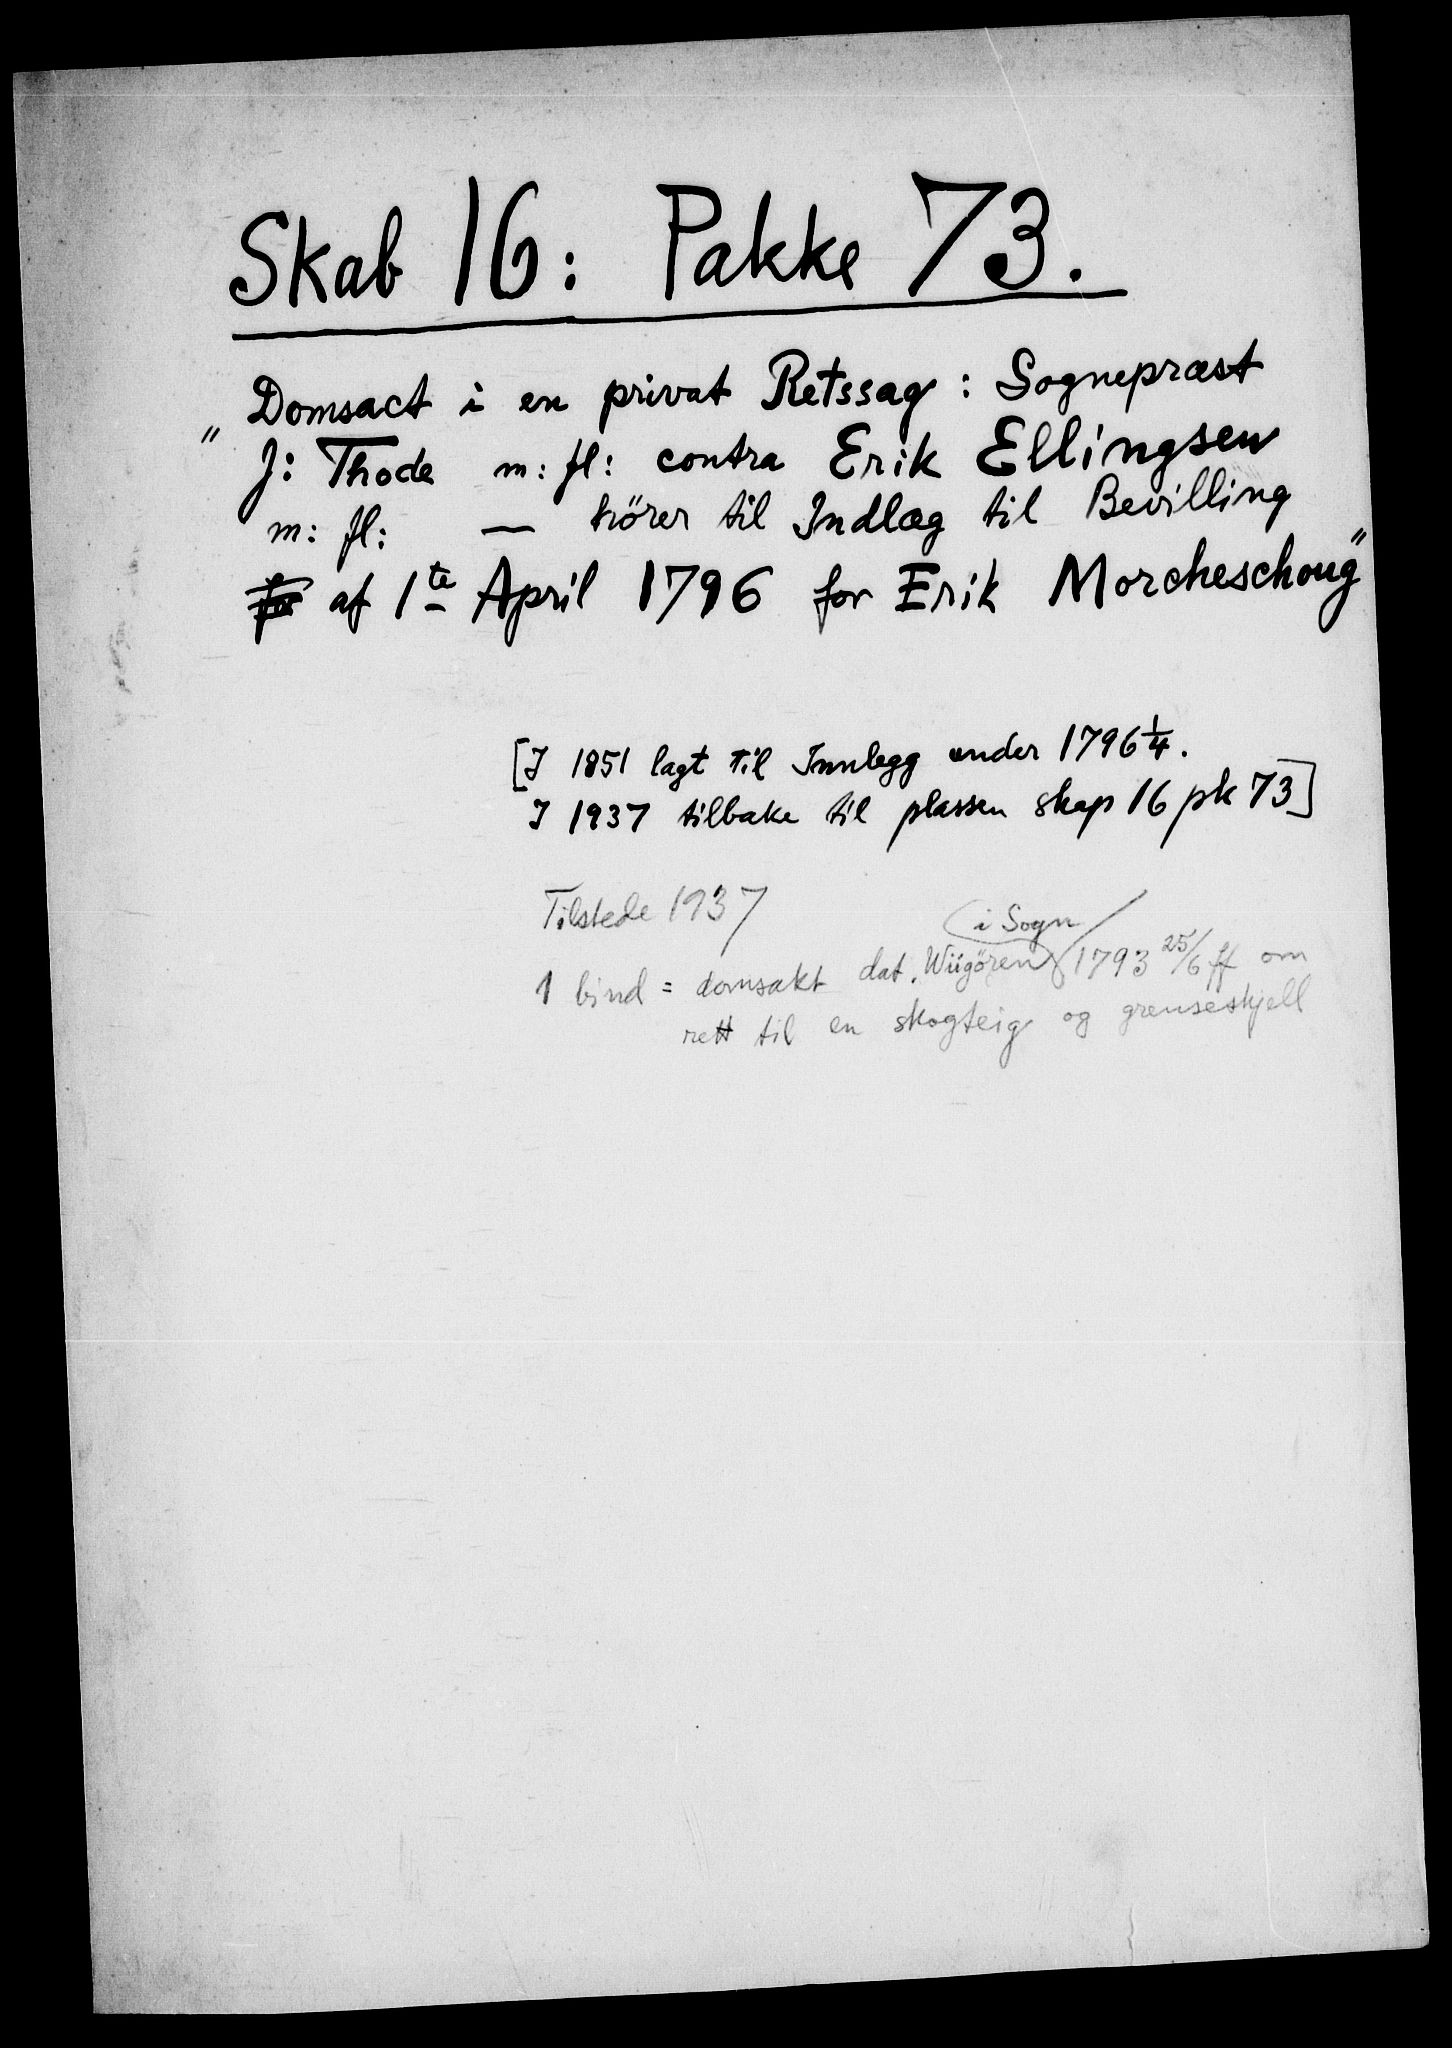 Skab 16: Pakke 73.
„Domsact i en privat Retssag: Sognepræst
J: Thode m: fl: contra Erik Ellingsen
m: fl: — hörer til Indlæg til Bevilling
for af 1te April 1796 for Erik Morcheschoug“
[I 1851 lagt til Innlegg under 1796 1/4.
I 1937 tilbake til plassen skap 16 pk 73]
Tilstede 1937
i Sogn
1 bind = domsakt dat. Wiigören 1793 25/6 ff om
rett til en skogteig og grenseskjell